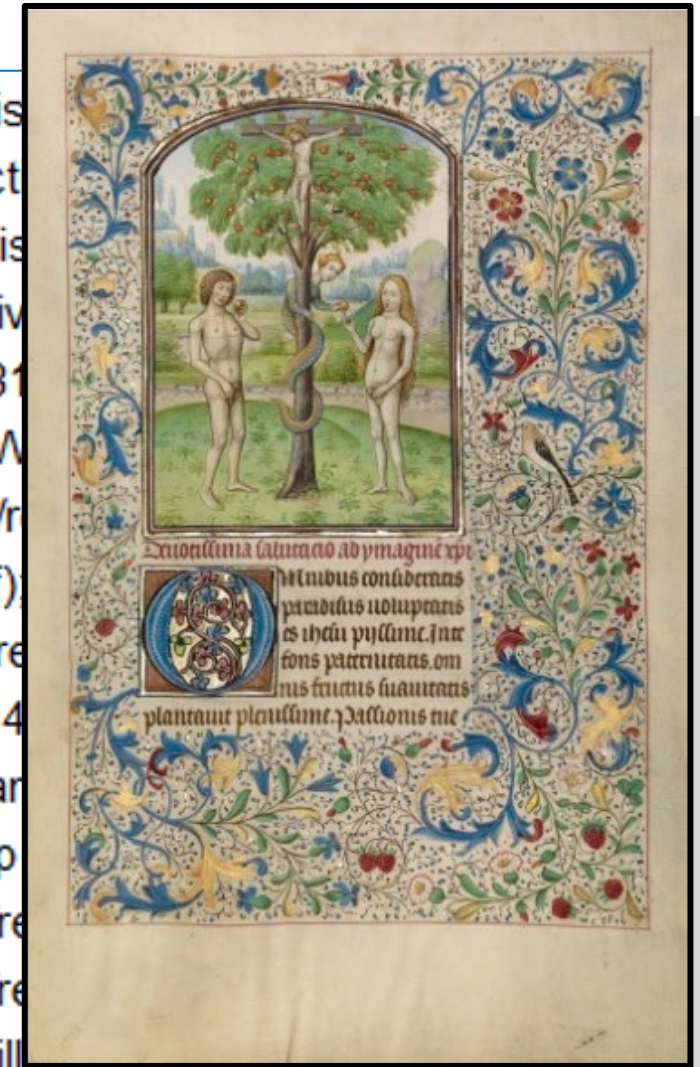 is
ct
is
iv
31
re
4
ar
p
re
re
ill
Deuotissima salutacio ad ymaginē xpi
OMnibus consideratis
paradisus uoluptatis
es ihesu pijssime. In te
fons paternitatis. om
nis fructus suauitatis
plantauit plenissime. Passionis tue